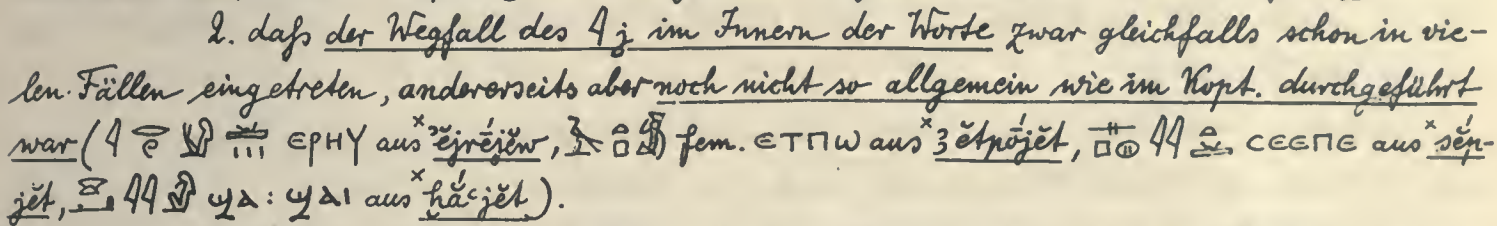 2. daſs der Wegfall des 𓇋 j im Innern der Worte zwar gleichfalls schon in vie-
len Fällen eingetreten, andererseits aber noch nicht so allgemein wie im Kopt. durchgeführt
war (𓇋 ⲉⲣⲏⲩ aus ˣʾĕjrējĕw, fem. ⲉⲧⲡⲱ aus ˣꜣĕtpōjĕt, 𓇋𓇋 ⲥⲉⲉⲡⲉ aus ˣsĕp-
jĕt, 𓇋𓇋 ϣⲁ : ϣⲁⲓ aus ˣḫăʿjĕt).